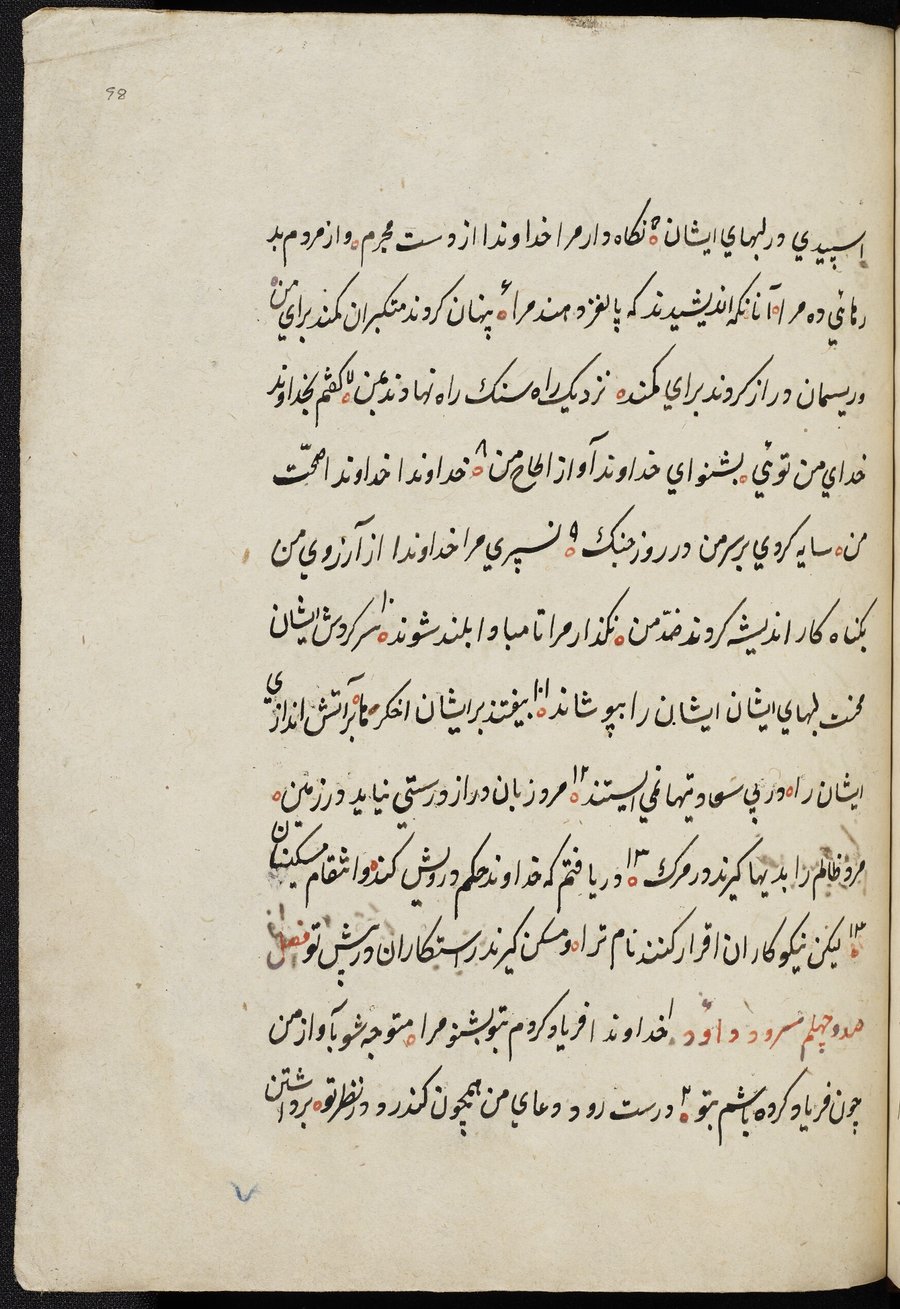 98
اسپيدي در لبهاي ايشان ٥ نكاه دار مرا خداوندا از دست مجرم ٥ و از مردم بد
رهائي ده مرا ٥ آنانكه انديشيدند كه پا لغز دهند مرا ٦ پنهان كردند متكبران كمند براي من
و ريسمان دراز كردند براي كمند ٥ نزديك راه سنك راه نهادند بمن ٧ كفتم بخداوند
خداي من توئي ٥ بشنو اي خداوند آواز الحاح من ٨ خداوندا خداوندا صحّت
من ٥ سايه كردي بر سر من در روز جنك ٩ نسپري مرا خداوندا از آرزوي من
بكناه كار انديشه كردند ضدّ من ٥ نكذار مرا تا مبادا بلند شوند ١٠ سر كردش ايشان
محنت لبهاي ايشان ايشان را بپوشاند ١١ بيفتند بر ايشان اخكرها ٥ بر آتش اندازي
ايشان را ٥ در پي سعادتيها نمي ايستند ١٢ مرد زبان دراز درستي نيايد در زمين ٥
مرد ظالم را بديها كيرند در مرك ١٣ دريافتم كه خداوند حكم درويش كند ٥ و انتقام مسكينان
١٣ ليكن نيكوكاران اقرار كنند نام ترا ٥ و مسكن كيرند راستكاران در پيش تو فصل
صد و چهلم سرود داؤد ١ خداوندا فرياد كردم بتو بشنو مرا ٥ متوجه شو بآواز من
چون فرياد كرده باشم بتو ٢ درست رود دعاي من همچون كندر و در نظر تو ٥ برداشتن